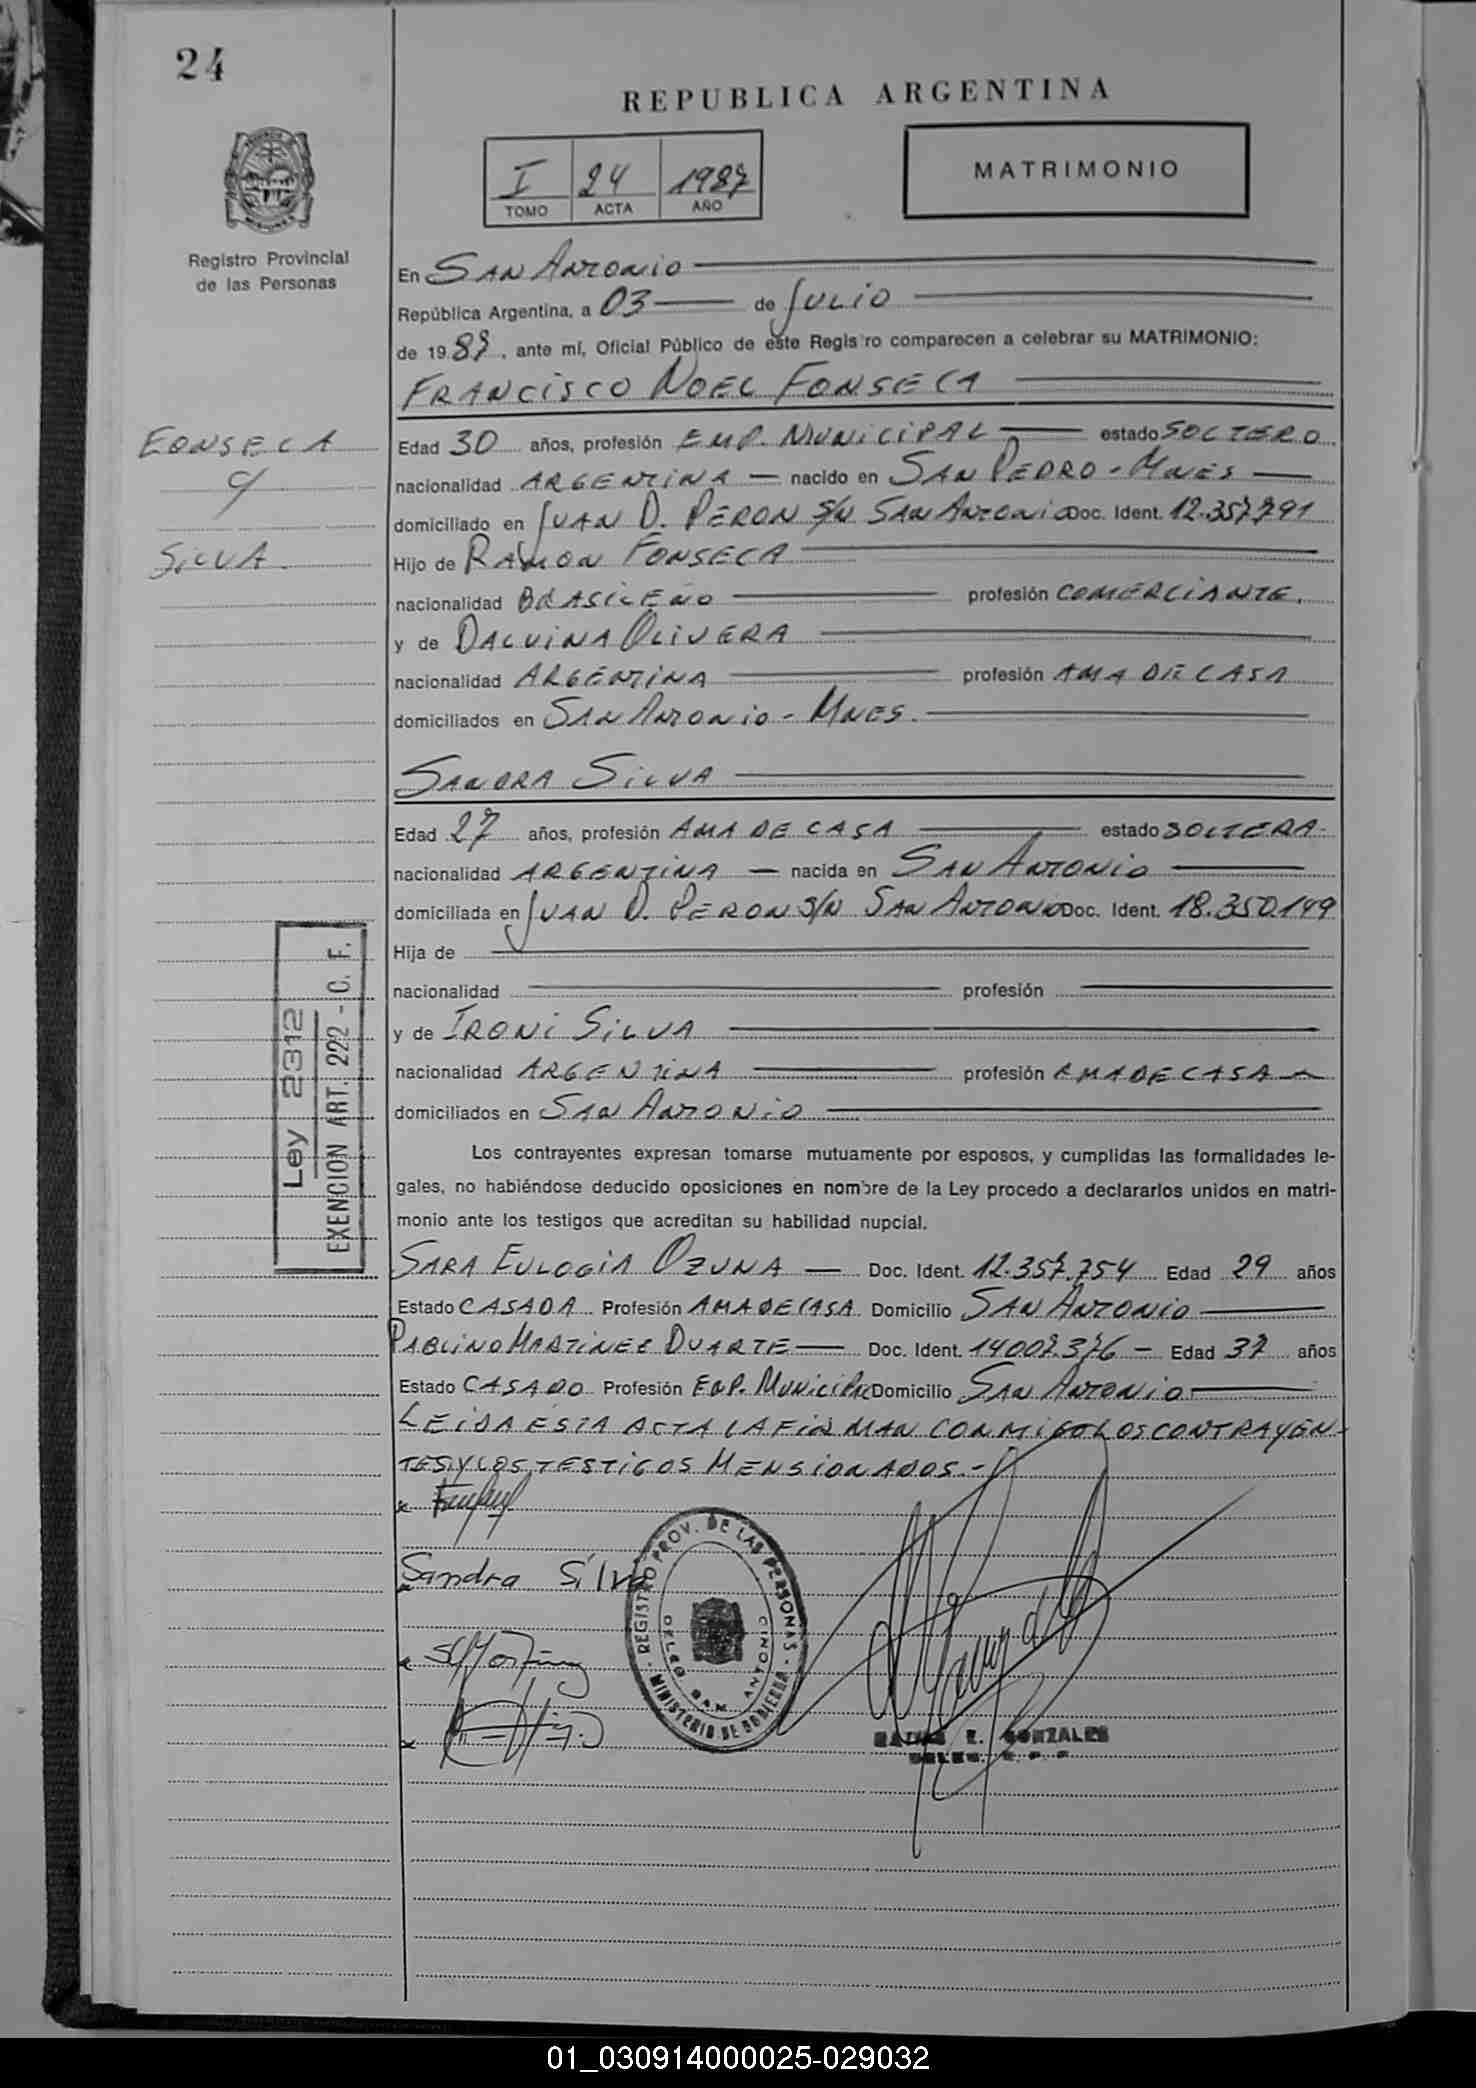 24
REPUBLICA ARGENTINA
I 24 1987
TOMO ACTA AÑO
MATRIMONIO
Registro Provincial
de las Personas
En SAN ANTONIO
República Argentina, a 03 de JULIO
de 1987, ante mí, Oficial Público de este Registro comparecen a celebrar su MATRIMONIO:
FRANCISCO NOEL FONSECA
FONSECA
c/
SILVA
Edad 30 años, profesión EMP. MUNICIPAL estado SOLTERO
nacionalidad ARGENTINA nacido en SAN PEDRO - MNES
domiciliado en JUAN D. PERON S/N SAN ANTONIO Doc. Ident. 12.357.791
Hijo de RAMON FONSECA
nacionalidad BRASILEÑO profesión COMERCIANTE.
y de DALVINA OLIVERA
nacionalidad ARGENTINA profesión AMA DE CASA
domiciliados en SAN ANTONIO - MNES.
SANDRA SILVA
Edad 27 años, profesión AMA DE CASA estado SOLTERA
nacionalidad ARGENTINA nacida en SAN ANTONIO
domiciliada en JUAN D. PERON S/N SAN ANTONIO Doc. Ident. 18.350.149
Hija de
nacionalidad profesión
y de IRONI SILVA
nacionalidad ARGENTINA profesión AMA DE CASA
domiciliados en SAN ANTONIO
Ley 2312
EXENCION ART. 222 - C. F.
Los contrayentes expresan tomarse mutuamente por esposos, y cumplidas las formalidades le-
gales, no habiéndose deducido oposiciones en nombre de la Ley procedo a declararlos unidos en matri-
monio ante los testigos que acreditan su habilidad nupcial.
SARA EULOGIA OZUNA Doc. Ident. 12.357.754 Edad 29 años
Estado CASADA Profesión AMA DE CASA Domicilio SAN ANTONIO
PABLINO MARTINEZ DUARTE Doc. Ident. 14007.376 Edad 37 años
Estado CASADO Profesión EMP. MUNICIPAL Domicilio SAN ANTONIO
LEIDA ESTA ACTA LA FIRMAN CONMIGO LOS CONTRAYEN-
TES Y LOS TESTIGOS MENSIONADOS.-
Sandra Silva
REGISTRO PROV. DE LAS PERSONAS
DELEG. SAN ANTONIO
MINISTERIO DE GOBIERNO
E. GONZALES
01_030914000025-029032